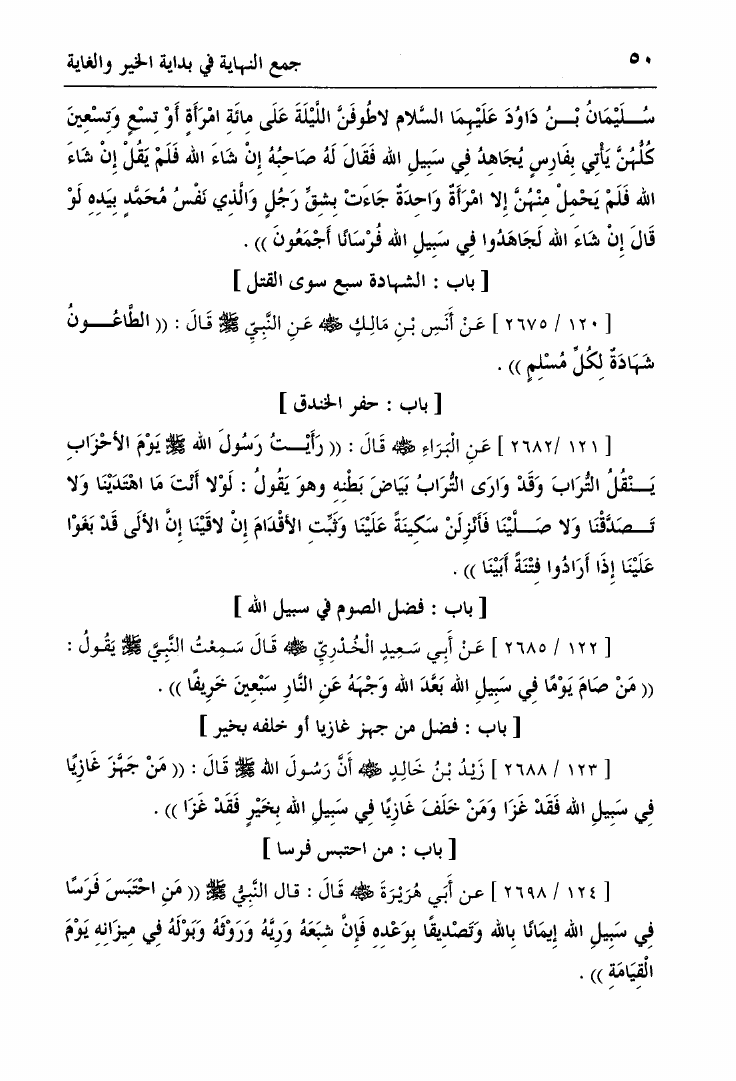 ٥٠ جمع النهاية في بداية الخير والغاية
سُـلَيْمَانُ بْـنُ دَاوُدَ عَلَيْهِمَا السَّلام لاطُوفَنَّ اللَّيْلَةَ عَلَى مِائَةِ امْرَأَةٍ أَوْ تِسْعٍ وَتِسْعِينَ
كُلُّهُنَّ يَأْتِي بِفَارِسٍ يُجَاهِدُ فِي سَبِيلِ الله فَقَالَ لَهُ صَاحِبُهُ إِنْ شَاءَ الله فَلَمْ يَقُلْ إِنْ شَاءَ
الله فَلَمْ يَحْمِلْ مِنْهُنَّ إِلا امْرَأَةٌ وَاحِدَةٌ جَاءَتْ بِشِقِّ رَجُلٍ وَالَّذِي نَفْسُ مُحَمَّدٍ بِيَدِهِ لَوْ
قَالَ إِنْ شَاءَ الله لَجَاهَدُوا فِي سَبِيلِ الله فُرْسَانًا أَجْمَعُونَ )) .
[ باب : الشهادة سبع سوى القتل ]
[ ١٢٠ / ٢٦٧٥ ] عَنْ أَنَسِ بْنِ مَالِكٍ ﷺ عَنِ النَّبِيِّ ﷺ قَالَ : (( الطَّاعُـونُ
شَهَادَةٌ لِكُلِّ مُسْلِمٍ )) .
[ باب : حفر الخندق ]
[ ١٢١ / ٢٦٨٢ ] عَنِ الْبَرَاءِ ﷺ قَالَ : (( رَأَيْـتُ رَسُولَ الله ﷺ يَوْمَ الأحْزَابِ
يَـنْقُلُ التُّرَابَ وَقَدْ وَارَى التُّرَابُ بَيَاضَ بَطْنِهِ وهوَ يَقُولُ : لَوْلا أَنْتَ مَا اهْتَدَيْنَا وَلا
تَـصَدَّقْنَا وَلا صَـلَّيْنَا فَأَنْزِلَنْ سَكِينَةً عَلَيْنَا وَثَبِّتِ الأقْدَامَ إِنْ لاقَيْنَا إِنَّ الألَى قَدْ بَغَوْا
عَلَيْنَا إِذَا أَرَادُوا فِتْنَةً أَبَيْنَا )) .
[ باب : فضل الصوم في سبيل الله ]
[ ١٢٢ / ٢٦٨٥ ] عَنْ أَبِي سَعِيدٍ الْخُدْرِيِّ ﷺ قَالَ سَمِعْتُ النَّبِيَّ ﷺ يَقُولُ :
(( مَنْ صَامَ يَوْمًا فِي سَبِيلِ الله بَعَّدَ الله وَجْهَهُ عَنِ النَّارِ سَبْعِينَ خَرِيفًا )) .
[ باب : فضل من جهز غازيا أو خلفه بخير ]
[ ١٢٣ / ٢٦٨٨ ] زَيْدُ بْنُ خَالِدٍ ﷺ أَنَّ رَسُولَ الله ﷺ قَالَ : (( مَنْ جَهَّزَ غَازِيًا
فِي سَبِيلِ الله فَقَدْ غَزَا وَمَنْ خَلَفَ غَازِيًا فِي سَبِيلِ الله بِخَيْرٍ فَقَدْ غَزَا )) .
[ باب : من احتبس فرسا ]
[ ١٢٤ / ٢٦٩٨ ] عن أَبِي هُرَيْرَةَ ﷺ قَالَ : قال النَّبِيُّ ﷺ (( مَنِ احْتَبَسَ فَرَسًا
فِي سَبِيلِ الله إِيمَانًا بِالله وَتَصْدِيقًا بِوَعْدِهِ فَإِنَّ شِبَعَهُ وَرِيَّهُ وَرَوْثَهُ وَبَوْلَهُ فِي مِيزَانِهِ يَوْمَ
الْقِيَامَةِ )) .